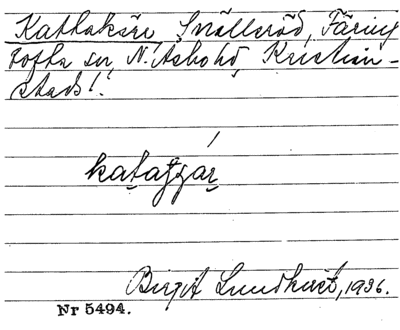 Kattakärr, Snällsröd, Färing
tofta sn, N. Åsbohd, Kristian-
stads l.
kataʒ́ʒar
Birgit Lundkvist, 1936.
Nr 5494.